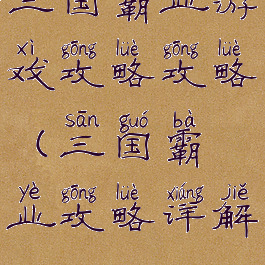 三国霸业游
xì gōng lüè gōng lüè
戏攻略攻略
sān guó bà
(三国霸
yè gōng lüè xiáng jiě
业攻略详解